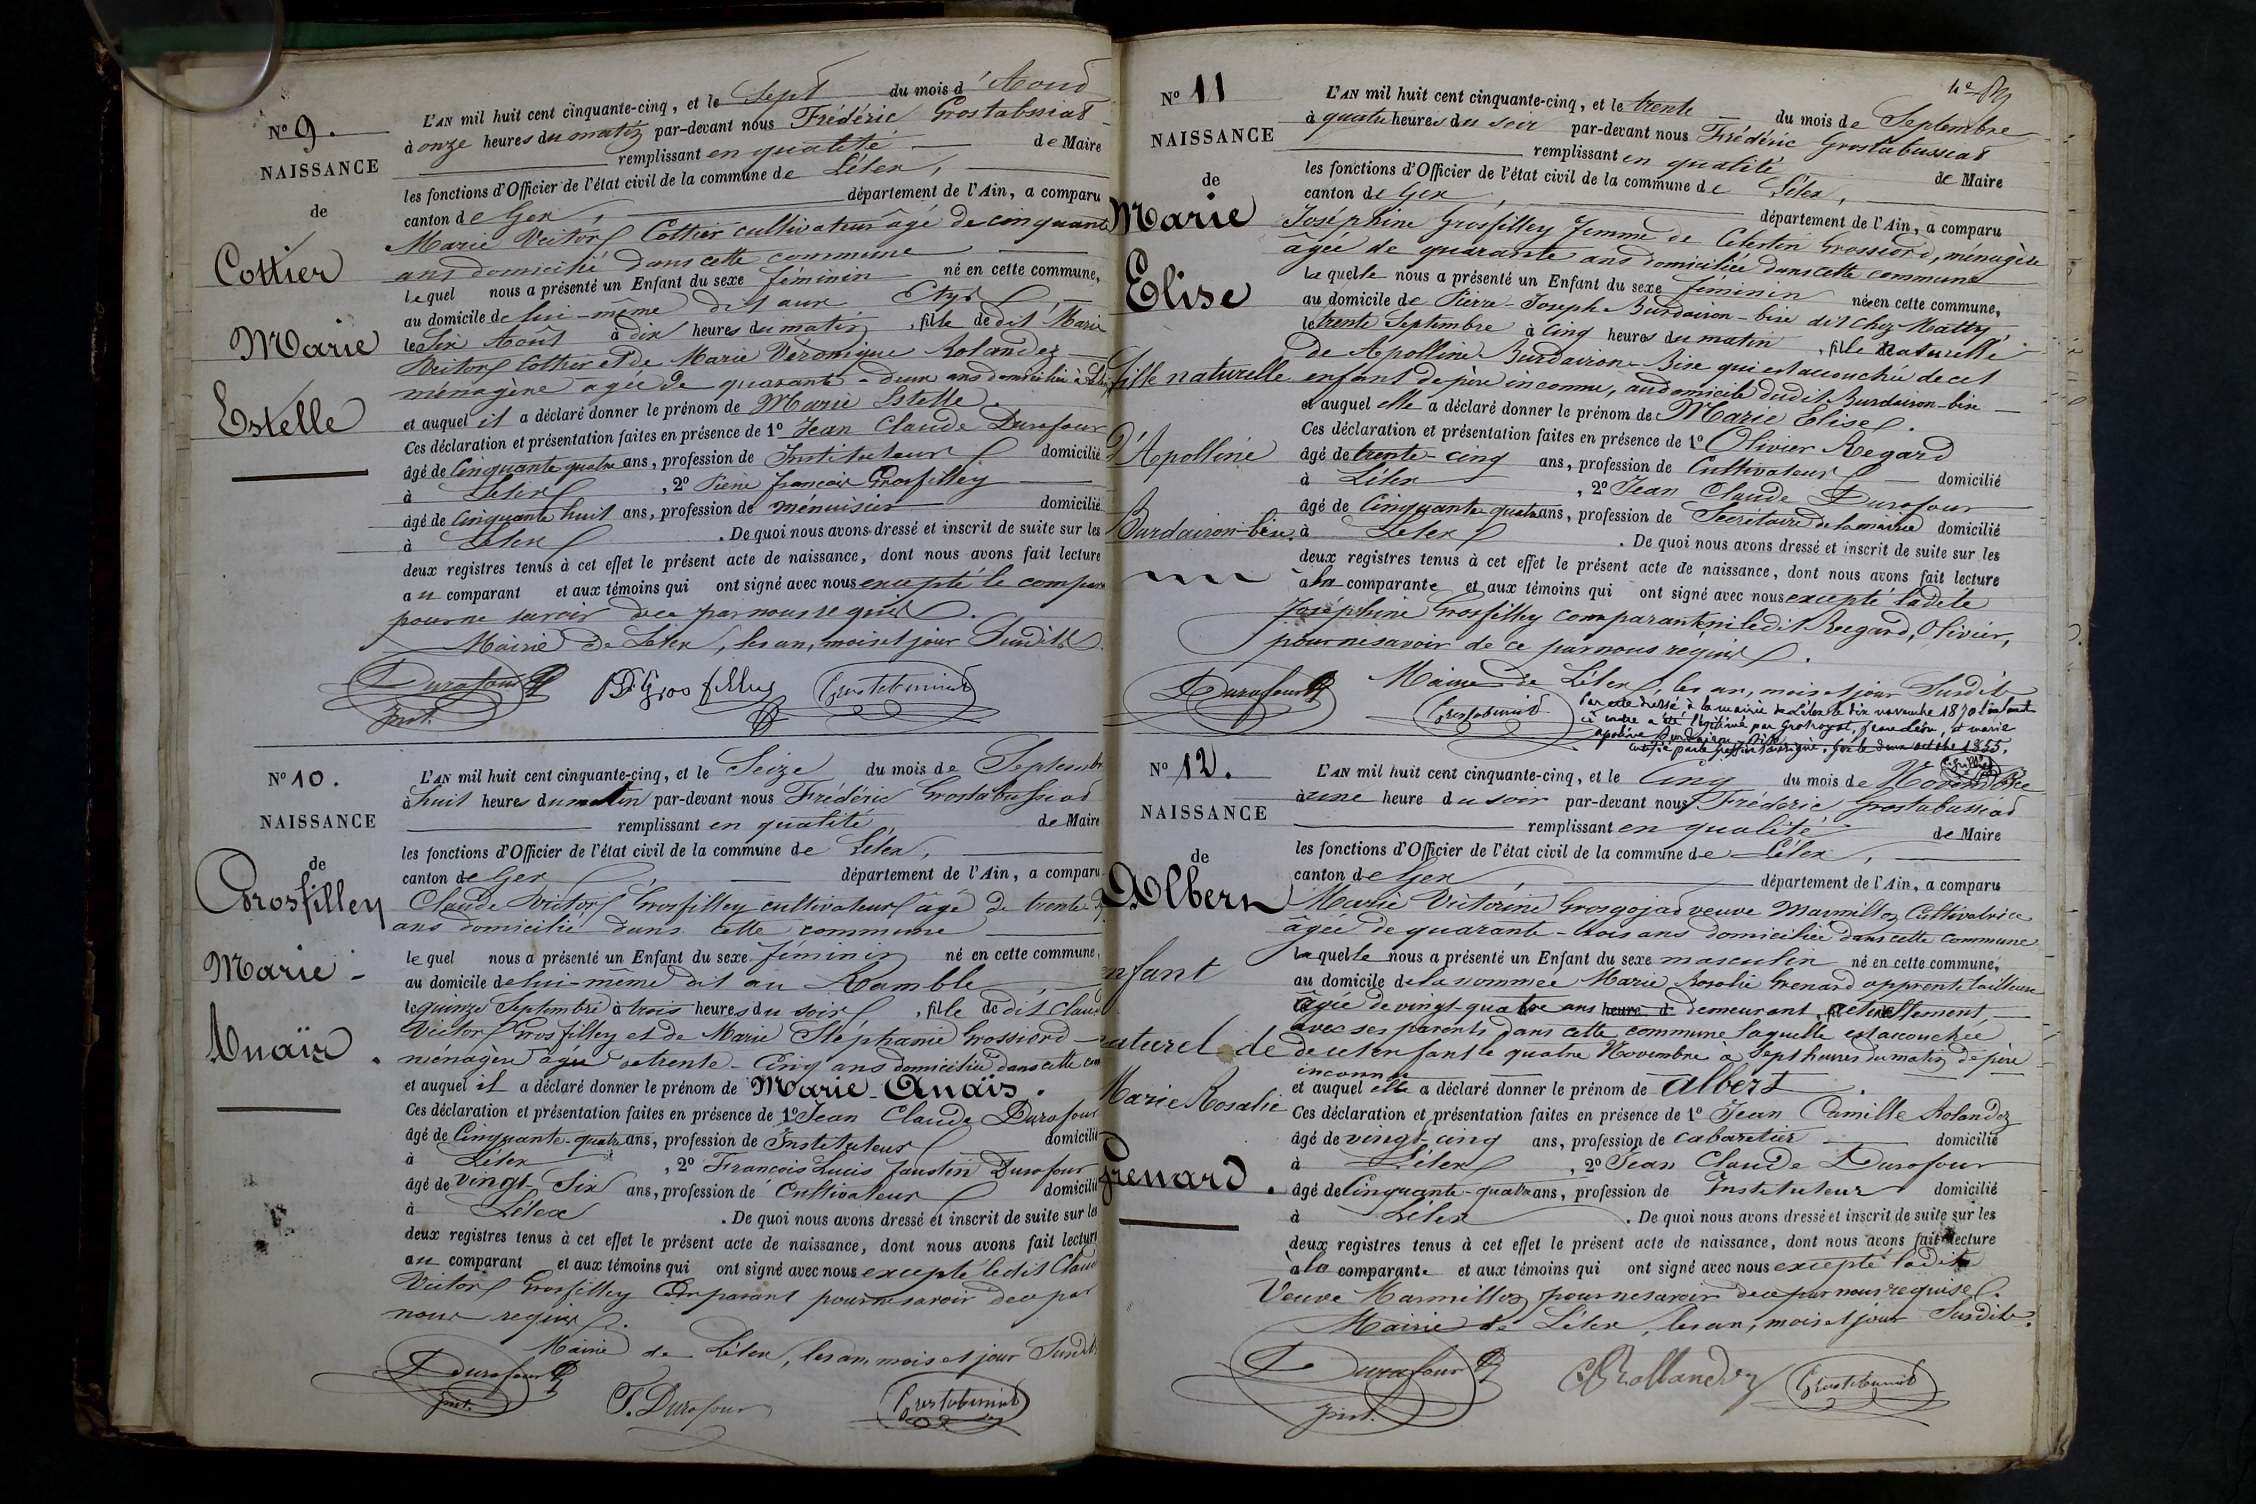 N° 9.
NAISSANCE
de
Cottier
Marie
Estelle
L'AN mil huit cent cinquante-cinq, et le Sept du mois d'Aoud
à onze heures du matin par-devant nous Frédéric Grostabussiat
remplissant en qualité de Maire
les fonctions d'Officier de l'état civil de la commune de Lélex,
canton de Gex, département de l'Ain, a comparu
Marie Victor Cottier cultivateur âgé de cinquante
ans domicilié dans cette commune
lequel nous a présenté un Enfant du sexe féminin né en cette commune,
au domicile de lui-même dit aux
le Six Août à dix heures du matin, fille de dit Marie
Victor Cottier et de Marie Véronique Rolandez
ménagère agée de quarante-deux ans domiciliée à Lélex
et auquel il a déclaré donner le prénom de Marie Estelle.
Ces déclaration et présentation faites en présence de 1° Jean Claude Durafour
âgé de Cinquante quatre ans, profession de Instituteur domicilié
à Lélex, 2° Pierre françois Grosfilley
âgé de Cinquante huit ans, profession de ménuisier domicilié
à Lélex. De quoi nous avons dressé et inscrit de suite sur les
deux registres tenus à cet effet le présent acte de naissance, dont nous avons fait lecture
au comparant et aux témoins qui ont signé avec nous excepté le compara
pour ne savoir de ce par nous requis.
Mairie de Lélex, les an, mois et jour Susdits.
Durafour
Inst.
Grosfilley
Grostabussiat
N° 10.
NAISSANCE
de
Grosfilley
Marie-
Anaïs.
L'AN mil huit cent cinquante-cinq, et le Seize du mois de Septembr
à huit heures du matin par-devant nous Frédéric Grostabussiat
remplissant en qualité de Maire
les fonctions d'Officier de l'état civil de la commune de Lélex,
canton de Gex, département de l'Ain, a comparu
Claude Victor Grosfilley cultivateur âgé de trente
ans domicilié dans cette commune
lequel nous a présenté un Enfant du sexe féminin né en cette commune,
au domicile de lui-même dit au Ramble
le quinze Septembre à trois heures du soir, fille de dit Claud
Victor Grosfilley et de Marie Stéphanie Grossiord
ménagère agée de trente-Cinq ans domiciliée dans cette com
et auquel il a déclaré donner le prénom de Marie-Anaïs.
Ces déclaration et présentation faites en présence de 1° Jean Claude Durafour
âgé de Cinquante-quatre ans, profession de Instituteur domicilié
à Lélex, 2° François Lucis faustin Durafour
âgé de vingt-Six ans, profession de Cultivateur domicilié
à Lélex. De quoi nous avons dressé et inscrit de suite sur les
deux registres tenus à cet effet le présent acte de naissance, dont nous avons fait lecture
au comparant et aux témoins qui ont signé avec nous excepté ledit Claud
Victor Grosfilley Comparant pour ne savoir de ce par
nous requis.
Mairie de Lélex, les an mois et jour Susdits
Durafour
Inst.
F. Durafour
Grostabussiat
N° 11
NAISSANCE
de
Marie
Elise
fille naturelle
d'Apolline
Burdairon-bise.
L'AN mil huit cent cinquante-cinq, et le trente du mois de Septembre
à quatre heures du soir par-devant nous Frédéric Grostabussiat
remplissant en qualité de Maire
les fonctions d'Officier de l'état civil de la commune de Lélex,
canton de Gex, département de l'Ain, a comparu
Joséphine Grosfilley femme de Célestin Grossiord, ménagère
âgée de quarante ans domiciliée dans cette commune
laquelle nous a présenté un Enfant du sexe féminin née en cette commune,
au domicile de Pierre-Joseph Burdairon-bise dit Chez Matty
le trente Septembre à cinq heures du matin, fille naturelle
de Apolline Burdairon-Bise qui est accouchée de cet
enfant de père inconnu, au domicile dudit Burdairon-bise
et auquel elle a déclaré donner le prénom de Marie Elise.
Ces déclaration et présentation faites en présence de 1° Olivier Régard
âgé de trente-cinq ans, profession de Cultivateur domicilié
à Lélex, 2° Jean Claude Durafour
âgé de Cinquante-quatre ans, profession de Secrétaire de la mairie domicilié
à Lélex. De quoi nous avons dressé et inscrit de suite sur les
deux registres tenus à cet effet le présent acte de naissance, dont nous avons fait lecture
à la comparante et aux témoins qui ont signé avec nous excepté ladite
Joséphine Grosfilley comparante ni ledit Regard, Olivier,
pour ne savoir de ce par nous requis.
Mairie de Lélex, les an, mois et jour Susdits
Durafour
Grostabussiat
Par acte dressé à la mairie de Lélex le dix novembre 1870 l'enfant
ci contre a été légitimé par Jean Léon, et marie
apoline Burdairon-Bise
certifié par le greffier soussigné. Gex le deux octobre
N° 12.
NAISSANCE
de
Albert
enfant
naturel de
Marie Rosalie
Grenard.
L'AN mil huit cent cinquante-cinq, et le Cinq du mois de Novembre
à une heure du soir par-devant nous Frédéric Grostabussiat
remplissant en qualité de Maire
les fonctions d'Officier de l'état civil de la commune de Lélex,
canton de Gex, département de l'Ain, a comparu
Marie Victorine Grosgojat veuve Marmillon Cultivatrice
âgée de quarante-trois ans domiciliée dans cette commune
laquelle nous a présenté un Enfant du sexe masculin né en cette commune,
au domicile de la nommée Marie Rosalie Grenard apprente tailleuse
âgée de vingt quatre ans heure d demeurant actuellement
avec ses parents dans cette commune laquelle est accouchée
de cet enfant le quatre Novembre à Sept heures du matin de père
inconnu
et auquel elle a déclaré donner le prénom de Albert.
Ces déclaration et présentation faites en présence de 1° Jean Camille Rolandez
âgé de vingt-cinq ans, profession de cabaretier domicilié
à Lélex, 2° Jean Claude Durafour
âgé de Cinquante-quatre ans, profession de Instituteur domicilié
à Lélex. De quoi nous avons dressé et inscrit de suite sur les
deux registres tenus à cet effet le présent acte de naissance, dont nous avons fait lecture
à la comparante et aux témoins qui ont signé avec nous excepté ladite
Veuve Marmillon pour ne savoir de ce par nous requise.
Mairie de Lélex, les an, mois et jour Susdits.
Durafour
Inst.
Rollandez
Grostabussiat